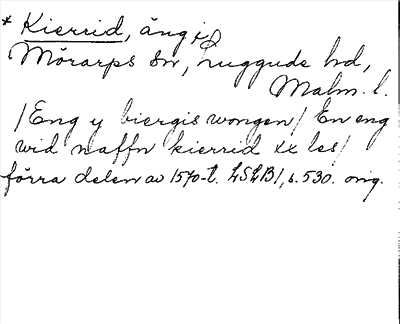 * Kierrid, äng i
Mörarps sn, Luggude hd,
Malm. l.
/Eng y biergis wongen/ En eng
wid naffn kierrid xx les/
förra delen av 1570-t. LSLB1, s. 530. orig.